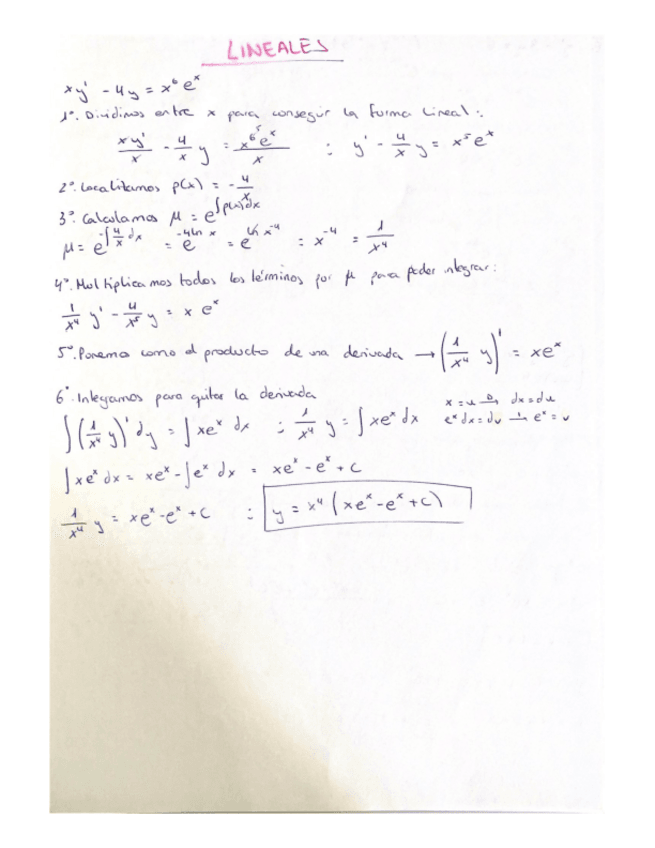 LINEALES
xy' - 4y = x⁶eˣ
1º. Dividimos entre x para conseguir la forma lineal:
xy'/x - 4/x y = x⁶⁵eˣ/x : y' - 4/x y = x⁵eˣ
2º. Localizamos p(x) = -4/x
3º. Calculamos μ = e^∫p(x)dx
μ = e^-∫4/x dx = e^-4ln x = e^ln x⁻⁴ : x⁻⁴ = 1/x⁴
4º. Multiplicamos todos los términos por μ para poder integrar:
1/x⁴ y' - 4/x⁵ y = x eˣ
5º. Ponemos como el producto de una derivada → (1/x⁴ y)' = xeˣ
6º. Integramos para quitar la derivada
x = u →D dx = du
∫(1/x⁴ y)' dy = ∫xeˣ dx : 1/x⁴ y = ∫xeˣ dx
eˣdx = dv →I eˣ = v
∫xeˣ dx = xeˣ - ∫eˣ dx = xeˣ - eˣ + C
1/x⁴ y = xeˣ - eˣ + C : y = x⁴(xeˣ - eˣ + C)